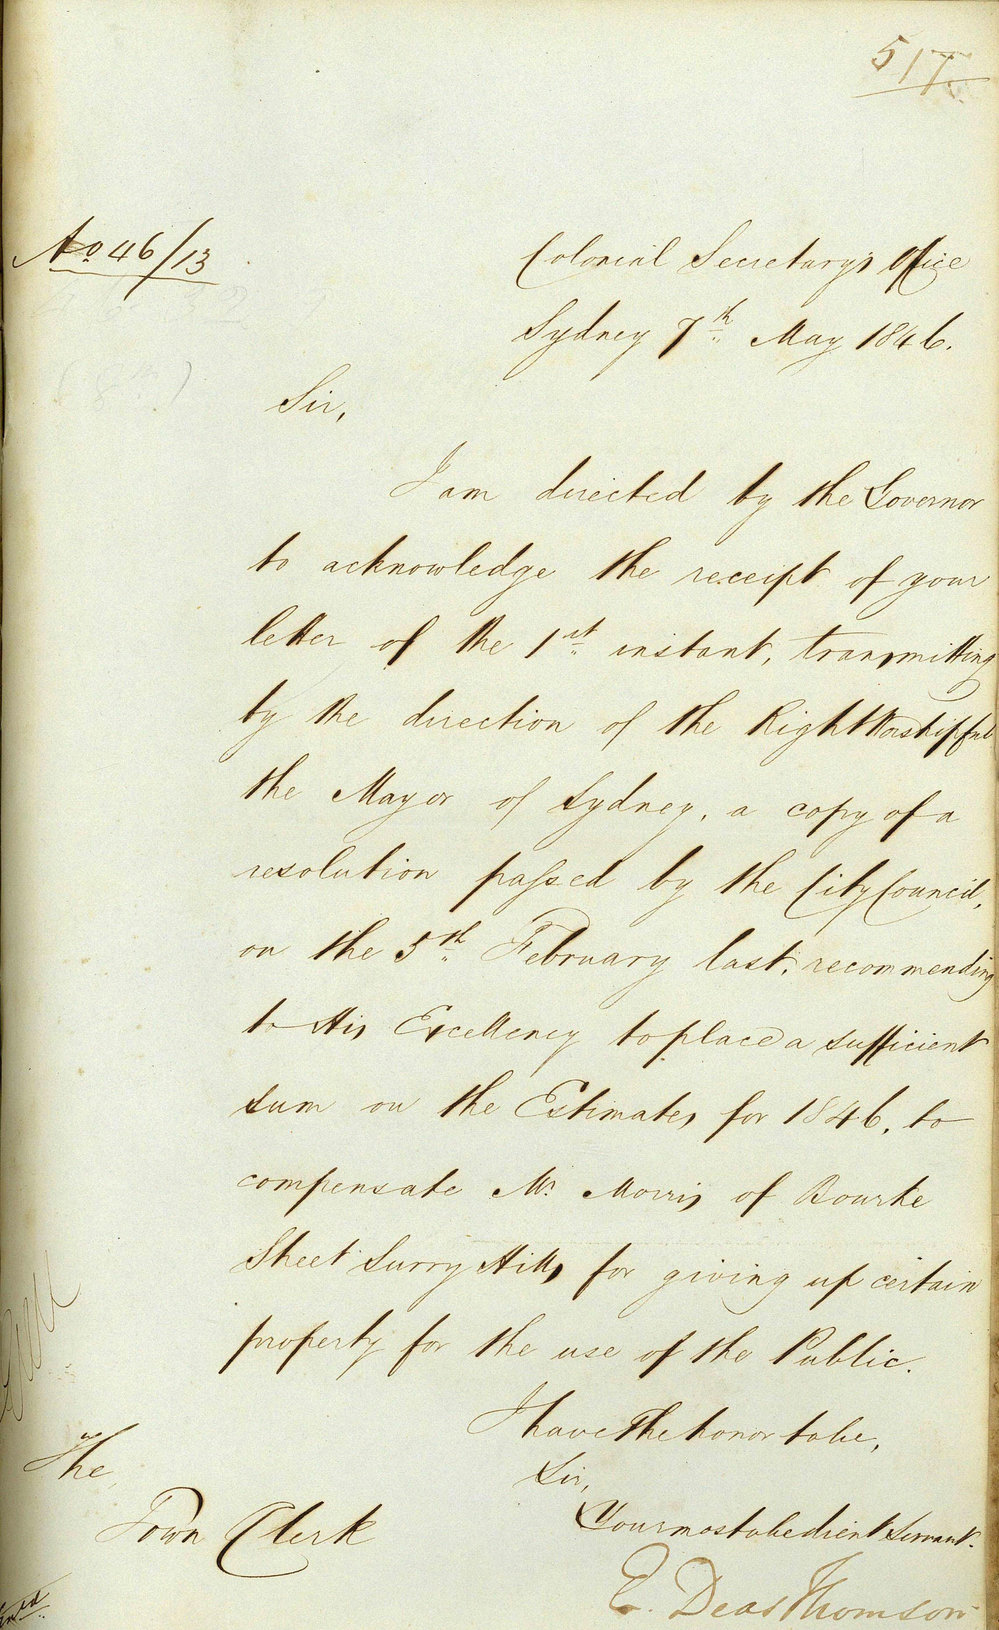 517
No 46/13
Colonial Secretary's Office
Sydney 7th May 1846.
Sir,
I am directed by the Governor
to acknowledge the receipt of your
letter of the 1st instant, transmitting
by the direction of the Right Worshipful
the Mayor of Sydney, a copy of a
resolution passed by the City Council,
on the 5th February last, recommending
to His Excellency to place a sufficient
sum on the Estimates for 1846, to
compensate Mr. Morris of Bourke
Street Surry Hills for giving up certain
property for the use of the Public.
I have the honor to be,
Sir,
Your most obedient Servant.
E. Deas Thomson
The,
Town Clerk